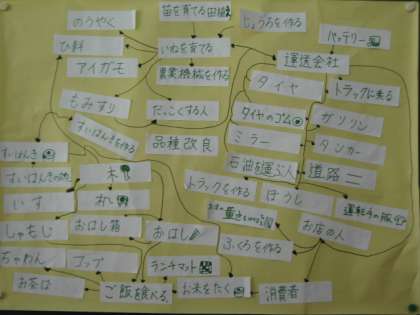 のうやく
苗を育てる田植え
じょうろを作る
バッテリー
ひ料
いねを育てる
運送会社
アイガモ
農業機械を作る
タイヤ
トラックに乗る
もみすり
だっこくする人
タイヤのゴム
ガソリン
すいはんきを作る
品種改良
ミラー
タンカー
すいはんき
石油を運ぶ人
道路
木
トラックを作る
ぼうし
いす
おはし箱
おはし
お店の人
しゃもじ
ふくろを作る
ちゃわん
コップ
ランチマット
お茶は
ご飯を食べる
お米をたく
消費者